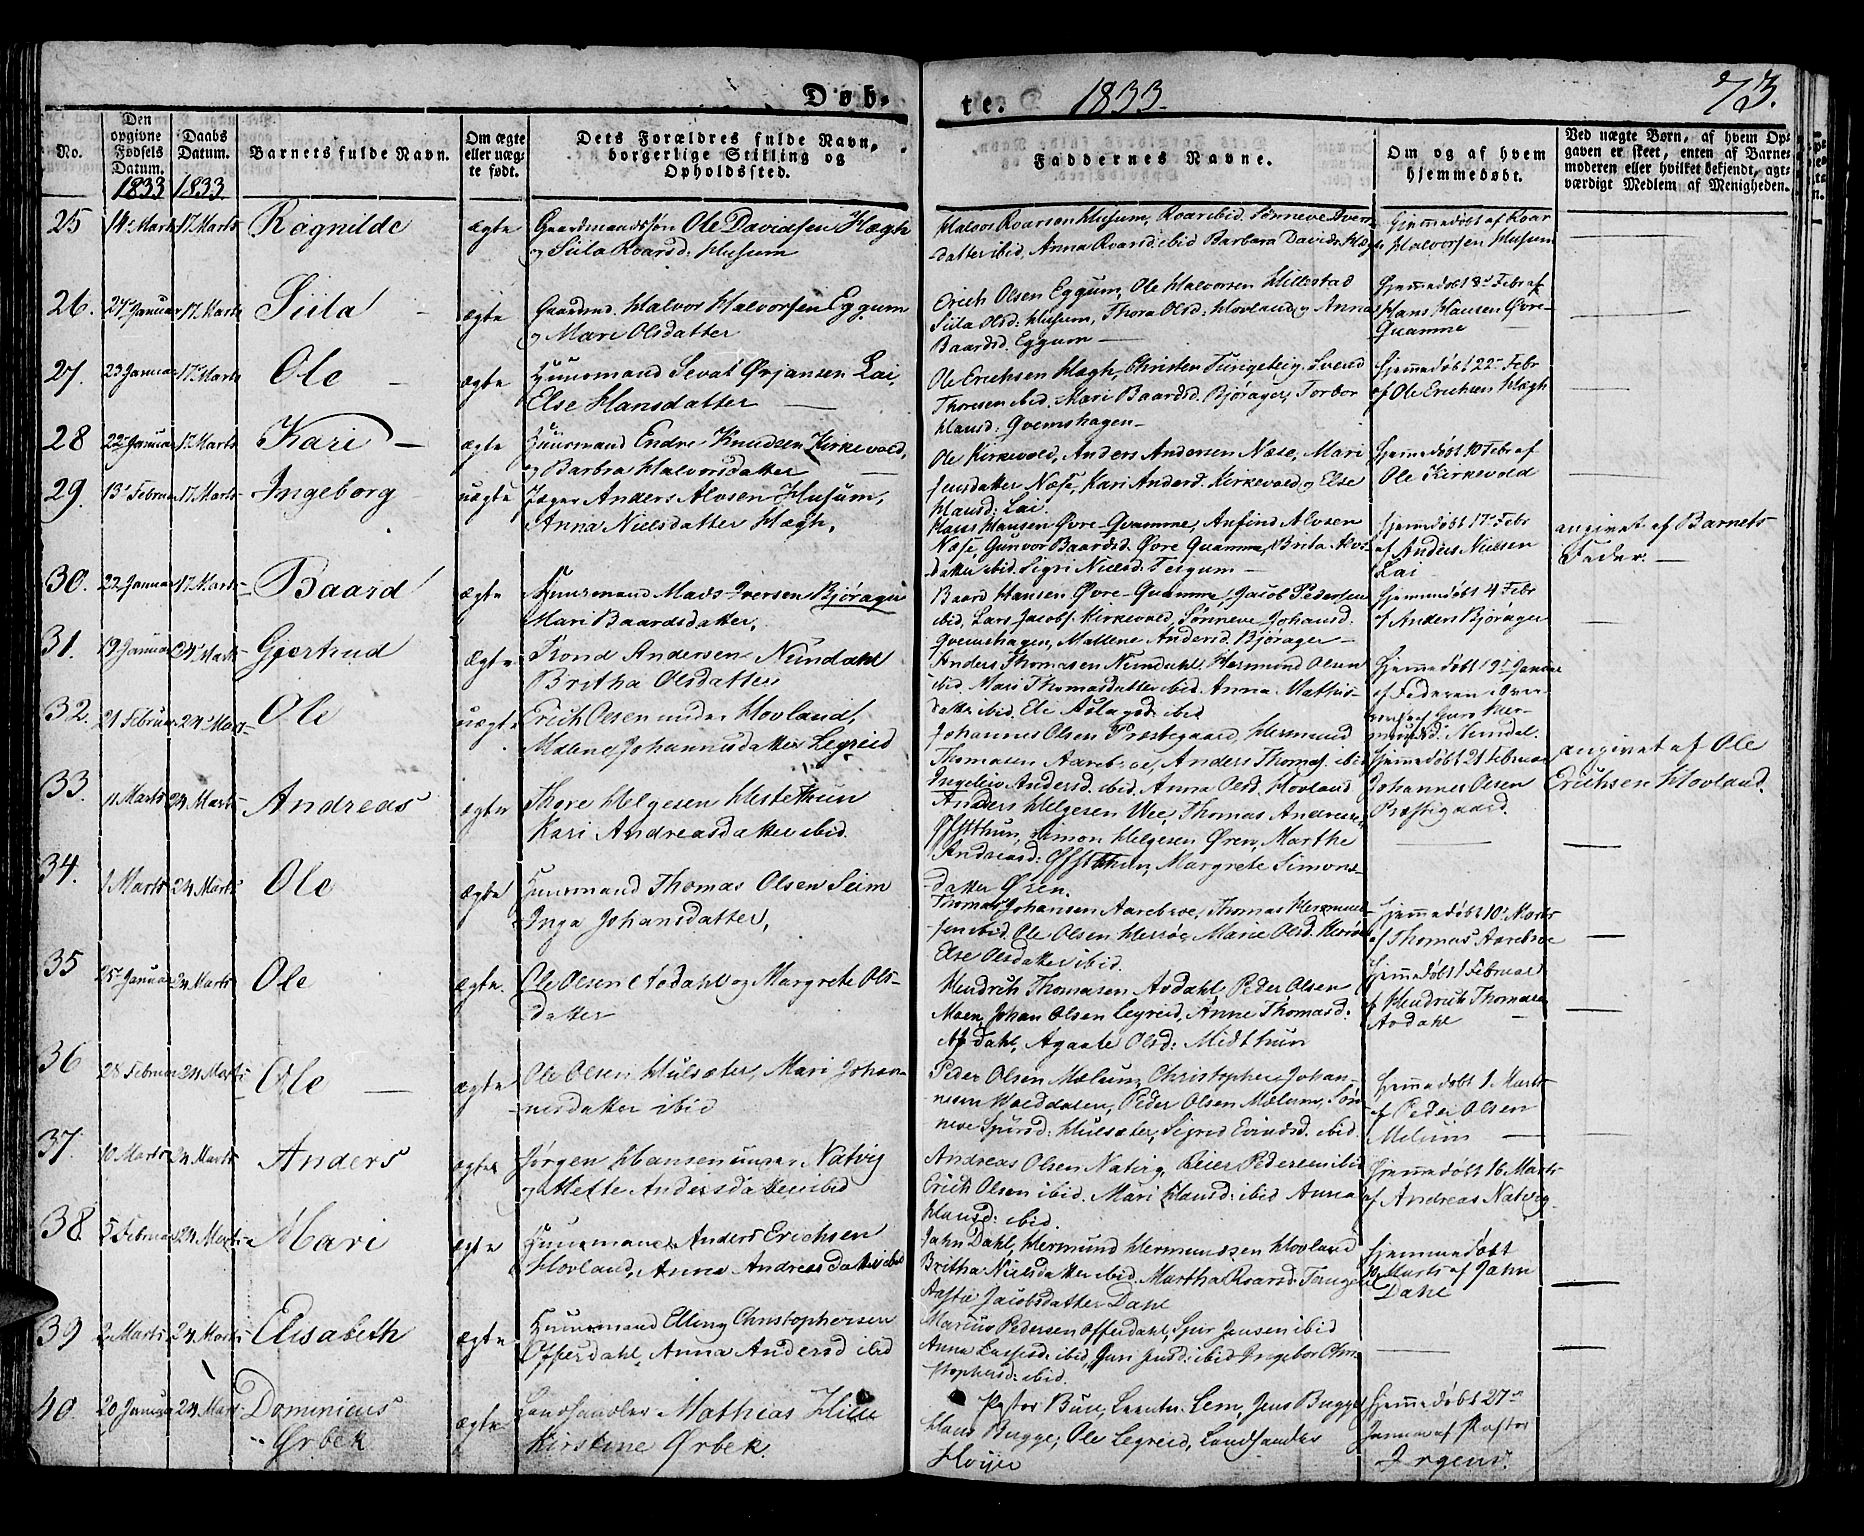 Døb-
te. 1833. 73.
No.
Den opgivne Fødsels Datum. 1833
Daabs Datum. 1833
Barnets fulde Navn.
Om ægte eller uæg-te født.
Dets Forældres fulde Navn, borgerlige Stilling og Opholdssted.
Faddernes Navne.
Om og af hvem hjemmedøbt.
Ved uægte Børn, af hvem Op-
gaven er skeet, enten af Barne-
moderen eller hvilket bekjendt, agt-
værdigt Medlem af Menigheden.
25 14 Marts 17 Marts Ragnilde ægte Gaardmandssøn Ole Davidsen Hægh
og Siila Roarsd: Husum
Halvor Roarsen Husum, Roar ibid. Sønneve Iver-
datter ibid, Anna Roarsd: ibid Barbara Davidsd. Hægh
Hjemmedøbt af Roar
Halvorsen Husum
26. 24 Januar 17 Marts Siila ægte Gaardmd Halvor Halvorsen Eggum
og Mari Olsdatter
Erich Olsen Eggum, Ole Halvorsen Hillestad
Siila Olsd: Husum, Thora Olsd: Hovland og Anna
Baardsd. Eggum
Hjemmedøbt 8d Febr af
Hans Hansen Øvre-
Quamme
27. 23 Januar 17 Marts Ole ægte Huusmand Sevat Ørjansen Lai,
Else Hansdatter
Ole Erichsen Hægh, Christen Tungeteig, Svend
Thoresen ibid. Mari Baardsd. Bjørager, Torbor
Hansd: Qvemshagen
Hjemmedøbt 22 Febr
af Ole Erichsen Hægh
28 22 Januar 17 Marts Kari ægte Huusmand Endre Knudsen Kirkevold,
og Barbra Halvorsdatter
Ole Kirkevold, Anders Andersen Næse, Mari
Jensdatter Næse, Kari Andersd. Kirkevold og Else
Hansd: Lai.
Hjemmedøbt 10 Feb af
Ole Kirkevold
29. 13 Februar 17 Marts Ingeborg uægte Jæger Anders Alvsen Husum,
Anna Nielsdatter Hægh.
Hans Hansen Øvre-Qvamme, Anfind Alvsen
Næse, Gunvor Baardsd. Øvre Quamme, Brita Alvs-
datter ibid. Sigri Nielsd. Tergum
Hjemmedøbt 17 Febr
af Anders Nielsen
Lai
angivet af Barnets
Fader.
30. 22 Januar 17 Marts Baard ægte Huusmand Mads Iversen Bjørager
Mari Baardsdatter.
Baard Hansen Øvre-Quamme, Jacob Pedersen
ibid, Lars Jacobs. Kirkevold, Sønneve Johansd.
Qvemshagen, Mallene Andersd. Bjørager
Hjemmedøbt 4 Febr
af Anders Bjørager
31. 19 Januar 24 Marts Gjertrud ægte Trond Andersen Nundahl
Britha Olsdatter
Anders Thomasen Nundahl, Hermund Olsen
ibid. Mari Thomasdatter ibid. Anna Mathis-
datter ibid. Eli Aslagsd. ibid
Hjemmedøbt 19 Januar
af Faderen
af Guro Her-
mundsd. Nundal.
32. 21 Februar 24 Marts Ole uægte Erich Olsen under Hovland,
Malene Johannisdatter Legreid
Johannes Olsen Præstegaard, Hermund
Thomasen Aarebroe, Anders Thomas. ibid
Ingeleiv Andersd. ibid. Anna Olsd. Hovland
Hjemmedøbt 21 Februar
Johannes Olsen
Præstegaard.
angivet af Ole
Erichsen Hovland.
33. 11 Marts 24 Marts Andreas ægte Thore Helgesen Hestethun
Kari Andreasdatter ibid.
Anders Helgesen Wee, Thomas Andreas.
Ofstthun, Simon Helgesen Øren, Marthe
Andreasd: Ofstthun, Margrete Simons-
datter Øren.
34. 1 Marts 24 Marts Ole ægte Huusmand Thomas Olsen Seim
Inga Johansdatter,
Thomas Johansen Aarebroe, Thomas Hermund-
sen ibid. Ole Olsen Herrøe, Marie Olsd. Herrøe
Else Olsdatter ibid.
Hjemmedøbt 10 Marts
af Thomas Aarebroe
35 25 Januar 24 Marts Ole ægte Ole Olsen Asdahl og Margrete Ols-
datter
Hendrich Thomasen Asdahl, Peder Olsen
Moen, Johan Olsen Legreid, Anne Thomasd:
Asdahl, Agaate Olsd: Midthun
Hjemmedøbt 1 Februar
af Hendrich Thomasen
Asdahl
36 28 Februar 24 Marts Ole ægte Ole Olsen Hulsæter, Mari Johan-
nesdatter ibid
Peder Olsen Mælum, Christopher Johan-
nesen Volddalen, Peder Olsen Mælum, Søn-
neve Spursd: Hulsæter, Sigrid Evindsd. ibid.
Hjemmedøbt 1 Marts
af Peder Olsen
Melum
37. 10 Marts 24 Marts Anders ægte Jørgen Hansen under Natvig
og Mette Andersdatter ibid
Andreas Olsen Natvig, Reier Pedersen ibid
Erich Olsen ibid. Mari Hansd: ibid Anna
Hansd: ibid.
Hjemmedøbt 16 Marts
af Andreas Natvig
38. 5 Februar 24 Marts Mari ægte Huusmand Anders Erichsen
Hovland, Anna Andreasdatter ibid
Jahn Dahl, Hermund Hermundsen Hovland
Britha Nielsdatter ibid. Martha Roarsd:
Aasta Jacobsdatter Dahl
Hjemmedøbt
10 Marts af Jahn
Dahl
39 2 Marts 24 Marts Elisabeth ægte Huusmand Elling Christophersen
Offerdahl, Anna Andersd ibid
Marcus Pedersen Offerdahl, Spur Jensen ibid
Anna Lassesd: ibid, Guri Jensd: ibid Ingebor Chri-
stophersd: ibid.
40. 20 Januar 24 Marts Dominicus
Ørbek ægte Landhandler Mathias Hille
Kirstine Ørbek.
Pastor Buse, Leutn: Lem, Jens Bugge
Hans Bugge, Ole Legreid, Landhandler
Høyer
Hjemmedøbt 27
Januar af Pastor
Irgens.